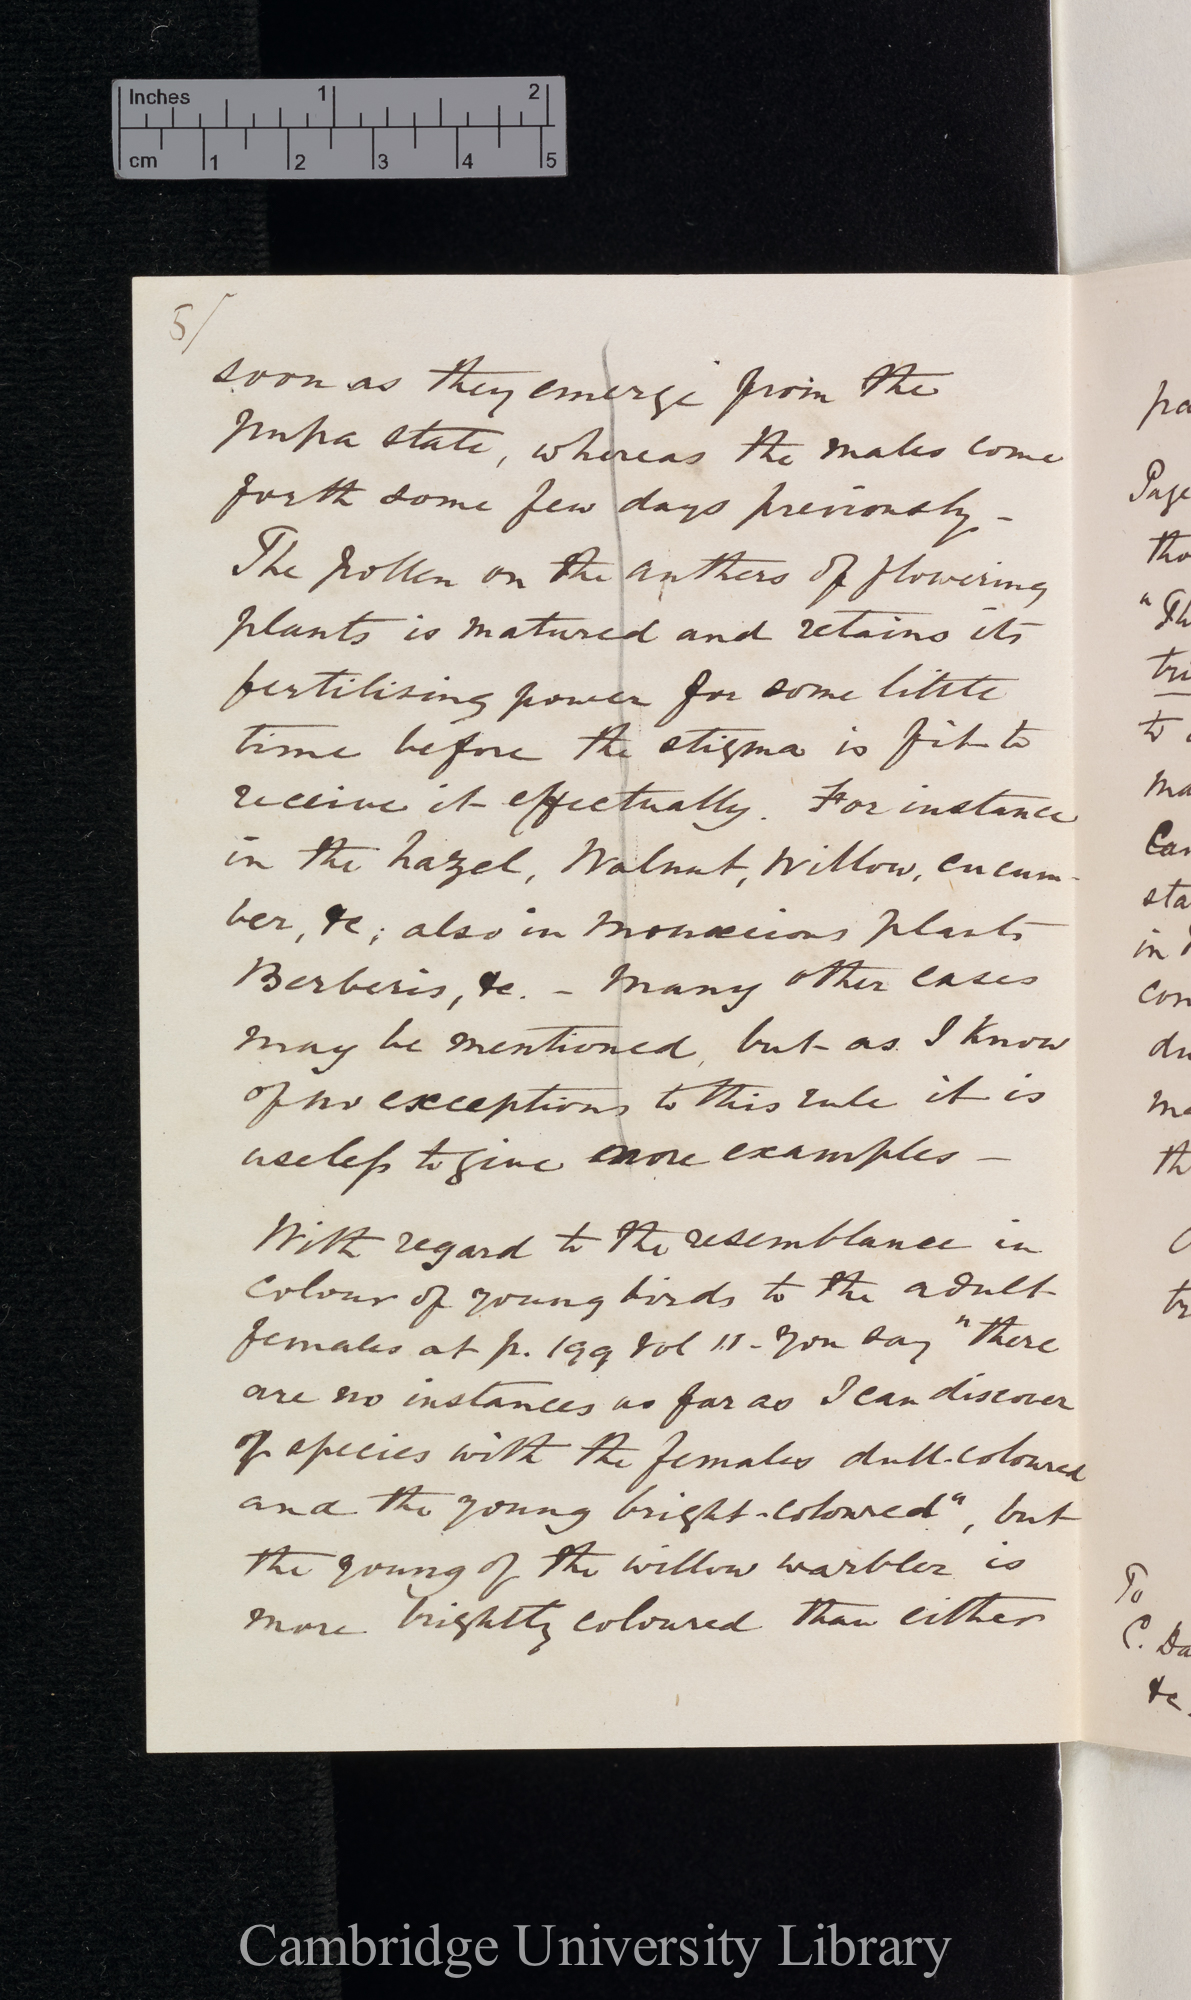 Inches 1 2
cm 1 2 3 4 5
5/
soon as they emerge from the
pupa state, whereas the males come
forth some few days previously –
The pollen on the anthers of flowering
plants is matured and retains its
fertilising power for some little
time before the stigma is fit to
receive it effectually. For instance
in the hazel, Walnut, Willow, cucum-
ber, &c; also in monœcious plants
Berberis, &c. – Many other cases
may be mentioned, but as I know
of no exceptions to this rule it is
useless to give more examples –
With regard to the resemblance in
colour of young birds to the adult
females at p. 199 Vol 11 - you say "there
are no instances as far as I can discover
of species with the females dull-coloured
and the young bright-coloured", but
the young of the willow warbler is
more brightly coloured than either
pa
Page
tho
"Th
tri
to
ma
Car
sta
in
con
du
ma
th
tr
To
C. Da
&c.
Cambridge University Library